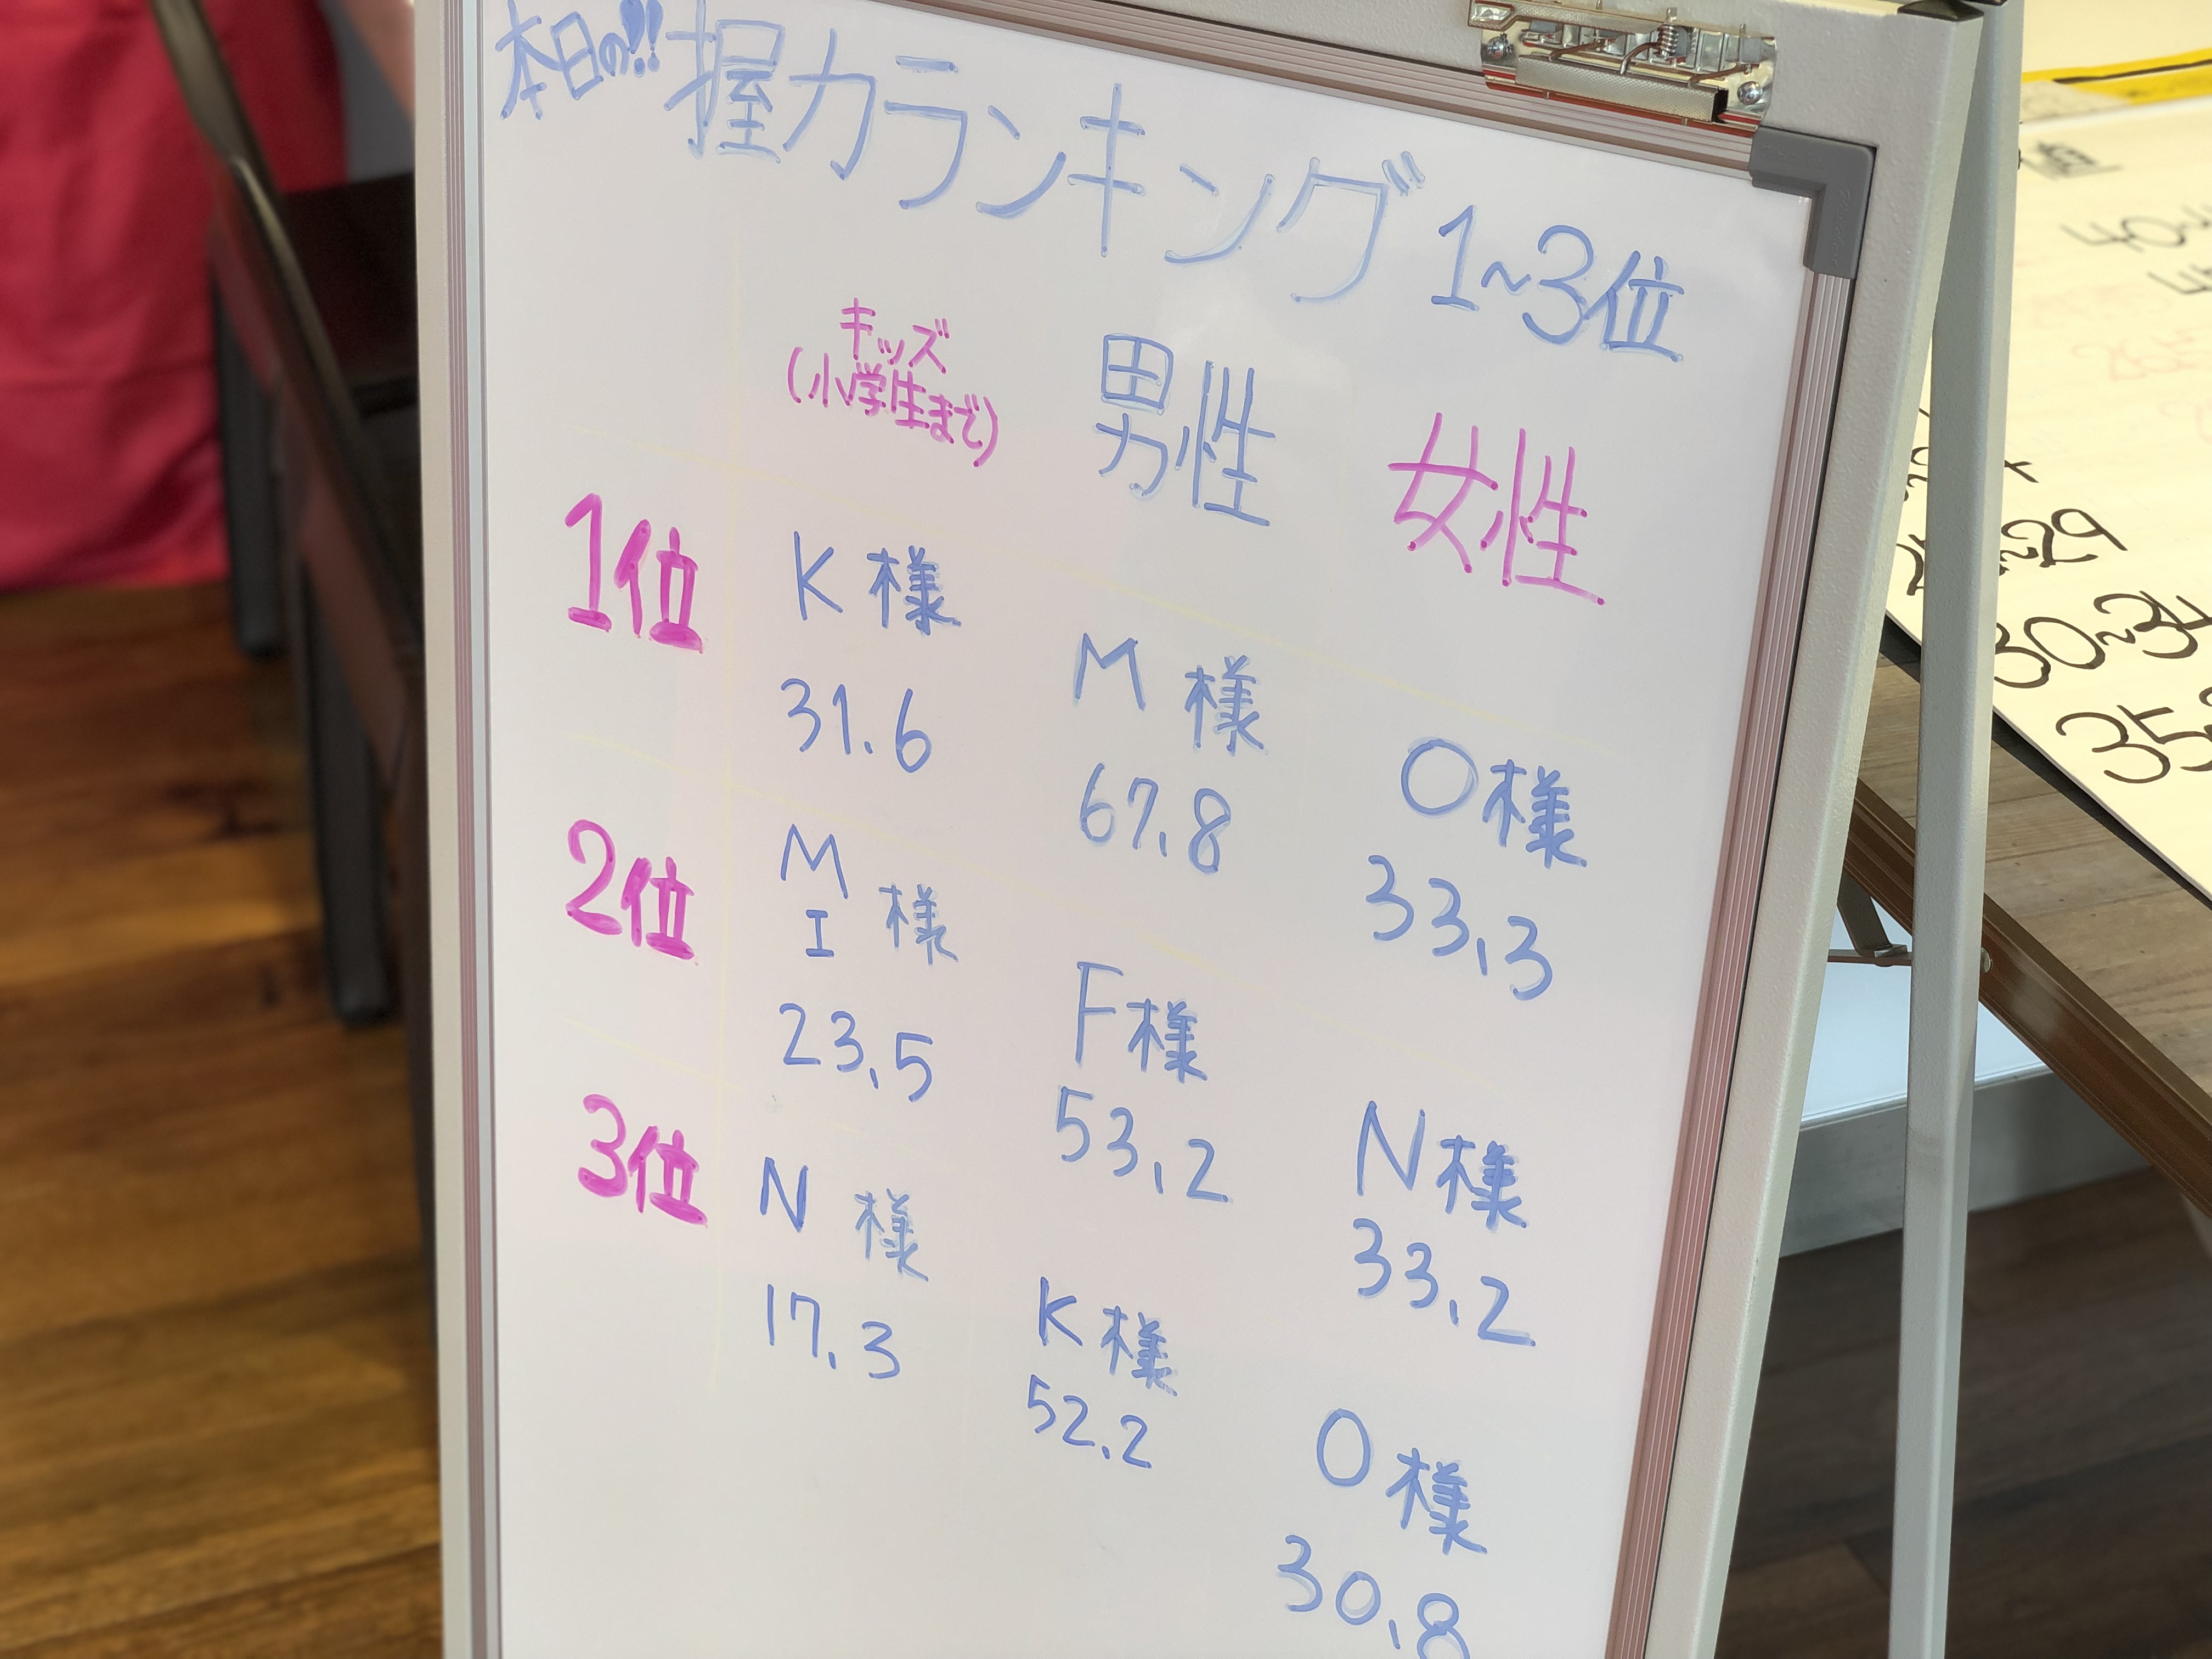 本日の!! 握力ランキング 1~3位
キッズ
(小学生まで)
男性
女性
1位
K 様
31.6
M 様
67.8
O 様
33.3
2位
M
I 様
23.5
F 様
53.2
N 様
33.2
3位
N 様
17.3
K 様
52.2
O 様
30.8